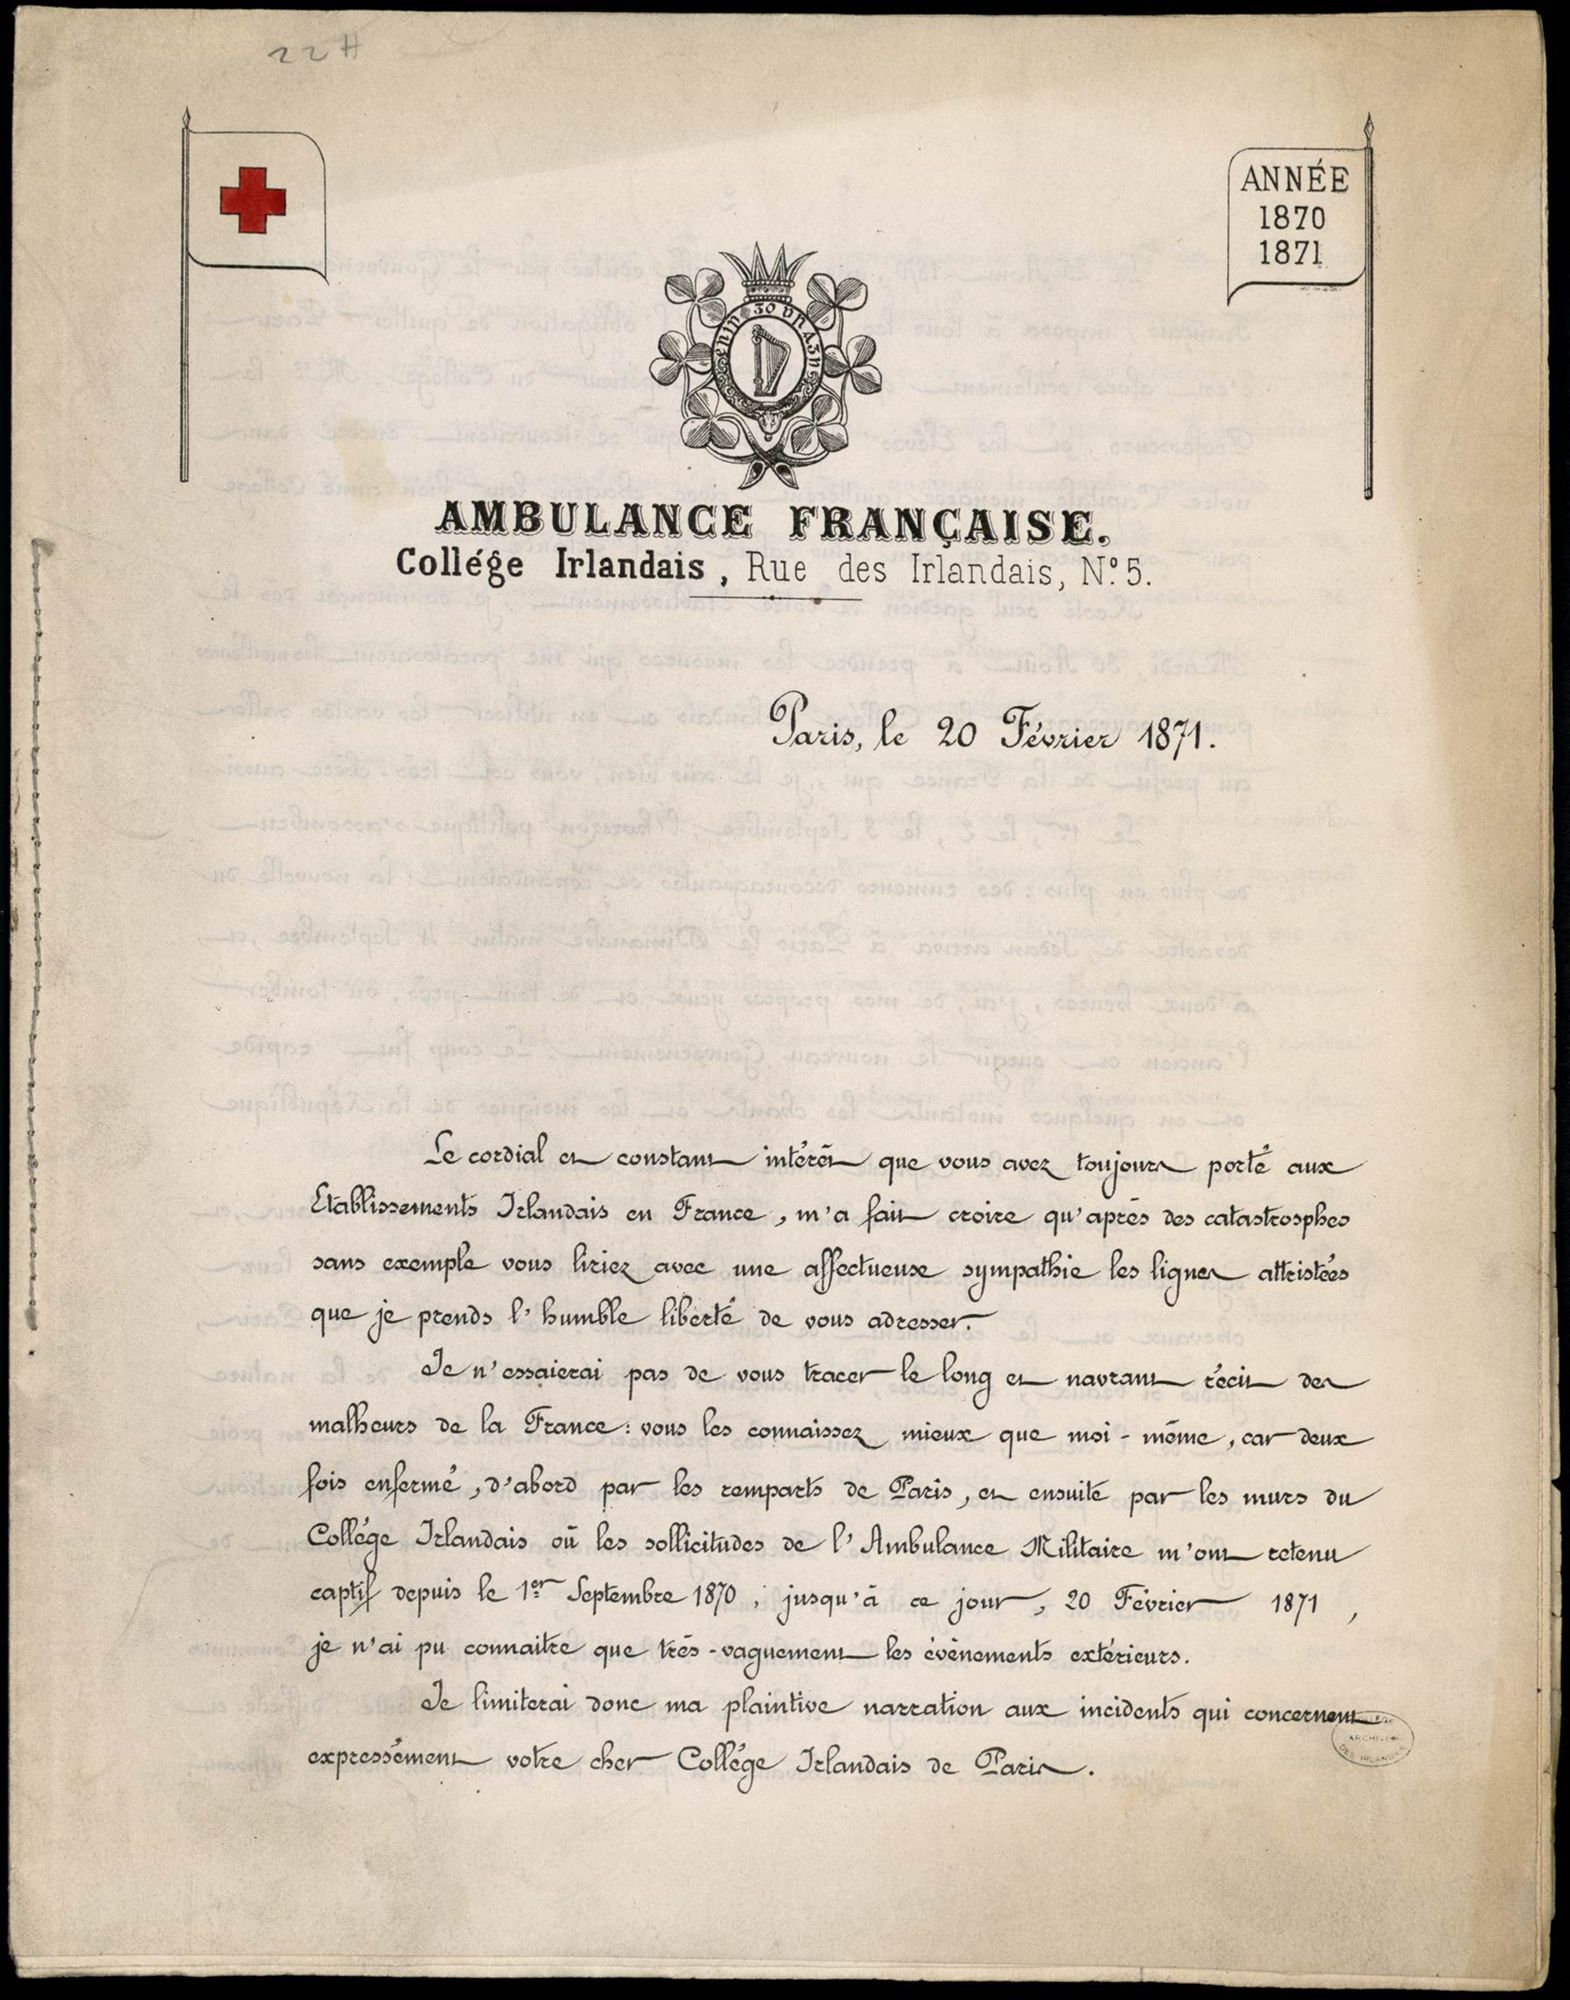 22 H
ANNÉE
1870
1871
AMBULANCE FRANÇAISE.
Collége Irlandais, Rue des Irlandais, N.º 5.
Paris, le 20 Février 1871.
Le cordial et constant intérêt que vous avez toujours porté aux
Etablissements Irlandais en France, m'a fait croire qu'après des catastrosphes
sans exemple vous liriez avec une affectueuse sympathie les lignes attristées
que je prends l'humble liberté de vous adresser.
Je n'essaierai pas de vous tracer le long et navrant récit des
malheurs de la France : vous les connaissez mieux que moi-même, car deux
fois enfermé, d'abord par les remparts de Paris, et ensuite par les murs du
Collége Irlandais où les sollicitudes de l'Ambulance Militaire m'ont retenu
captif depuis le 1er Septembre 1870, jusqu'à ce jour, 20 Février 1871,
je n'ai pu connaitre que très-vaguement les évènements extérieurs.
Je limiterai donc ma plaintive narration aux incidents qui concernent
expressément votre cher Collége Irlandais de Paris.
ARCHIVES
DES IRLANDAIS